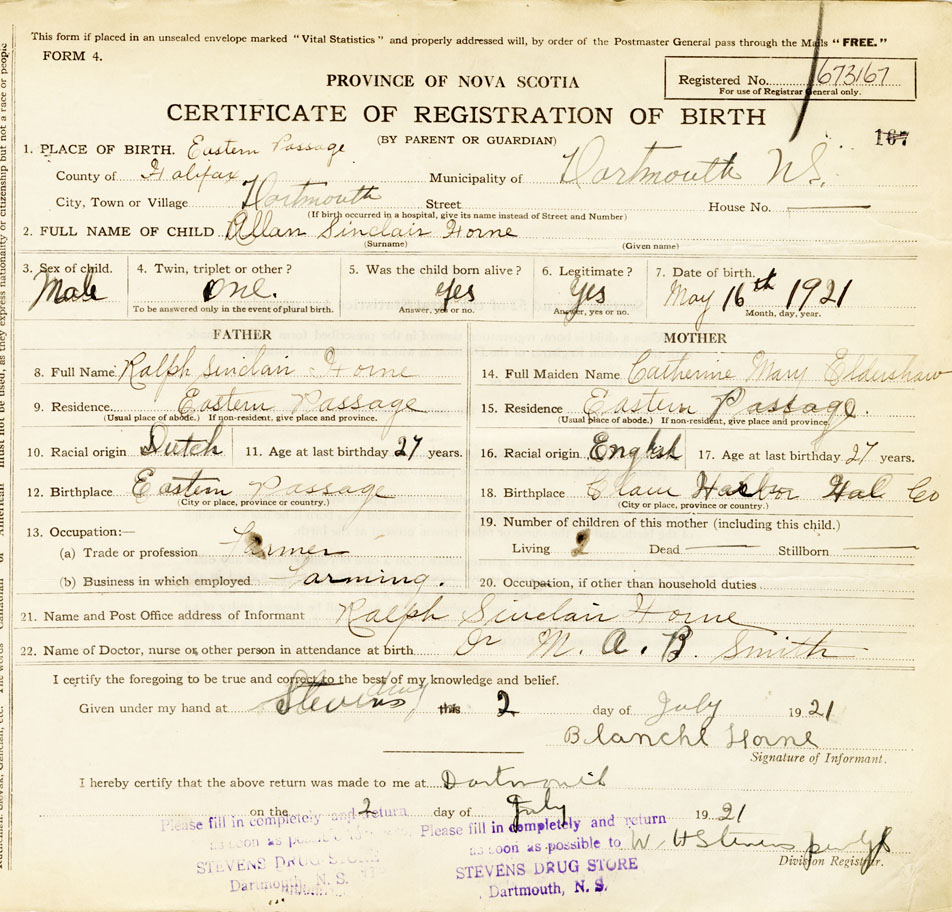 This form if placed in an unsealed envelope marked "Vital Statistics" and properly addressed will, by order of the Postmaster General pass through the Mails "FREE."
FORM 4.
PROVINCE OF NOVA SCOTIA
Registered No. 673167
For use of Registrar General only.
CERTIFICATE OF REGISTRATION OF BIRTH
(BY PARENT OR GUARDIAN)
167
1. PLACE OF BIRTH. Eastern Passage
County of Halifax Municipality of Dartmouth N.S.
City, Town or Village Dartmouth Street House No.
(If birth occurred in a hospital, give its name instead of Street and Number)
2. FULL NAME OF CHILD Allan Sinclair Horne
(Surname) (Given name)
3. Sex of child. 4. Twin, triplet or other? 5. Was the child born alive? 6. Legitimate? 7. Date of birth.
Male one. yes Yes May 16th 1921
To be answered only in the event of plural birth. Answer, yes or no. Answer, yes or no. Month, day, year.
FATHER MOTHER
8. Full Name Ralph Sinclair Horne 14. Full Maiden Name Catherine Mary Eldershaw
9. Residence. Eastern Passage 15. Residence Eastern Passage.
(Usual place of abode.) If non-resident, give place and province. (Usual place of abode.) If non-resident, give place and province.
10. Racial origin Dutch 11. Age at last birthday 27 years. 16. Racial origin English 17. Age at last birthday 27 years.
12. Birthplace Eastern Passage 18. Birthplace Clam Harbor Hal Co
(City or place, province or country.) (City or place, province or country.)
13. Occupation:— 19. Number of children of this mother (including this child.)
(a) Trade or profession Farmer Living 2 Dead Stillborn
(b) Business in which employed Farming. 20. Occupation, if other than household duties
21. Name and Post Office address of Informant Ralph Sinclair Horne
22. Name of Doctor, nurse or other person in attendance at birth Dr M. A. B. Smith
I certify the foregoing to be true and correct to the best of my knowledge and belief.
Given under my hand at Stevens drug this 2 day of July 1921
Blanche Horne
Signature of Informant.
I hereby certify that the above return was made to me at Dartmouth
on the 2 day of July 1921
W H Stevens
Division Registrar.
Please fill in completely and return
as soon as possible to
STEVENS DRUG STORE
Dartmouth, N. S.
Please fill in completely and return
as soon as possible to
STEVENS DRUG STORE
Dartmouth, N. S.